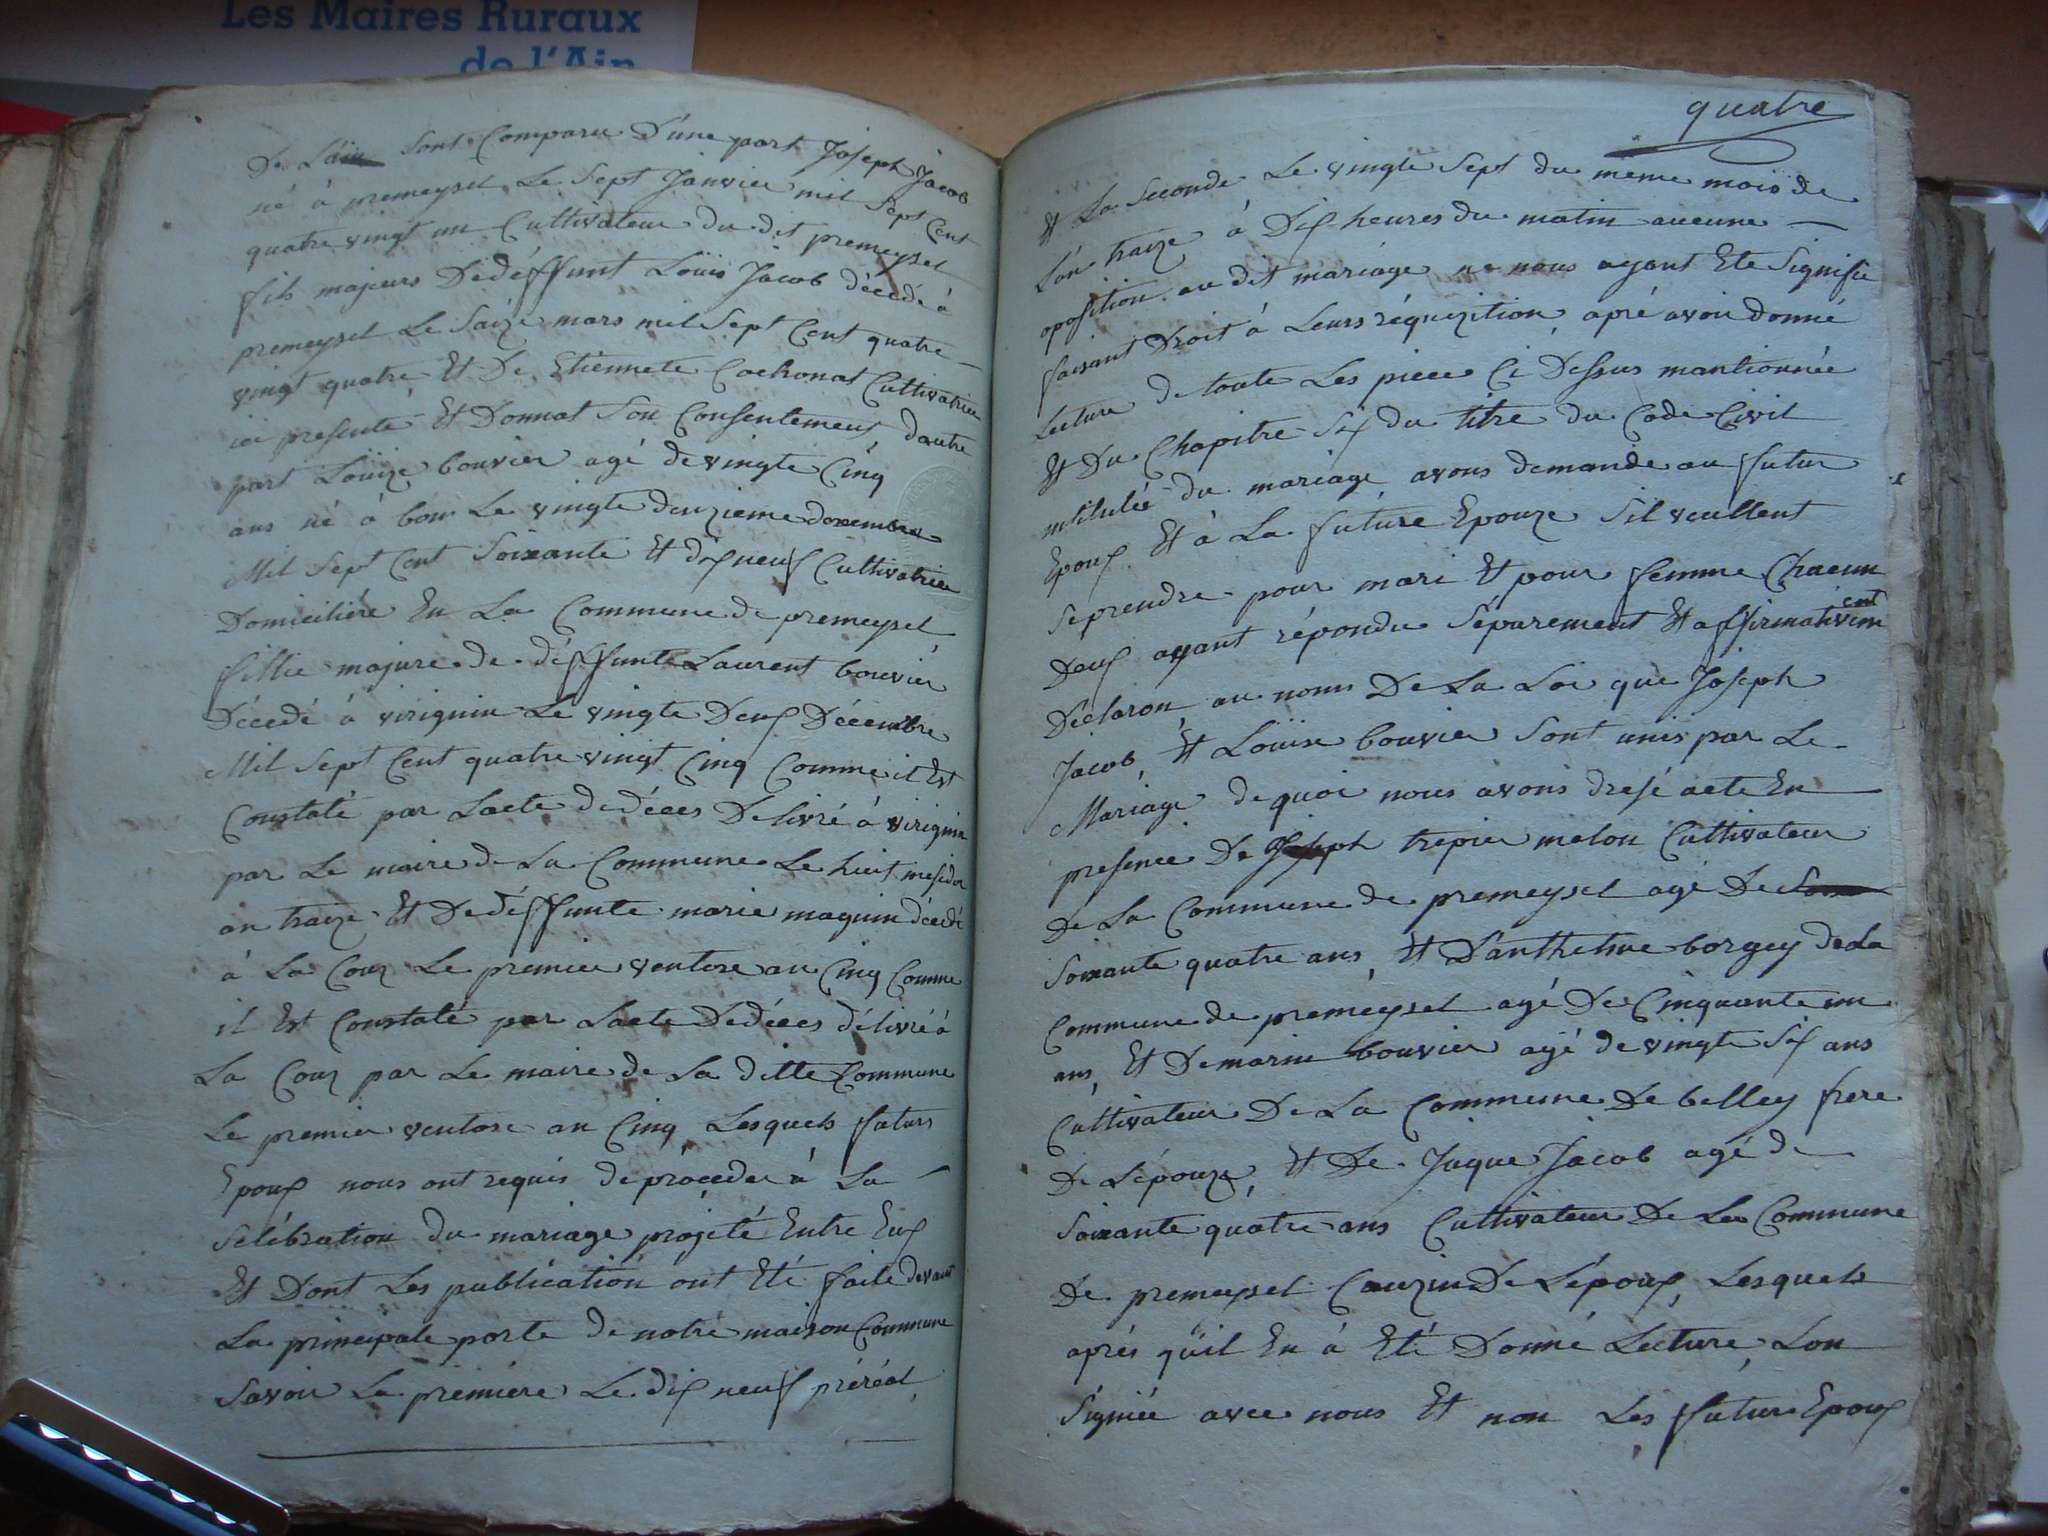 Les Maires Ruraux
de l'Ain
De L'ain sont Comparu D'une part Joseph Jacob
né à premeysel Le Sept Janvier mil Sept Cent
quatre vingt un Cultivateur du dit premeysel
fils majeurs De déffunt Loüis Jacob décédé à
premeysel Le Saize mars mil Sept Cent quatre
vingt quatre Et De Etiennete Cultivatrice
ici presente Et Donnat Son Consentement, dautre
part Loüize bouvier agé de vingte Cinq
ans né à Le vingte deuzieme
Mil Sept Cent Soixante Et dix neuf Cultivatrice
Domiciliére En La Commune de premeysel
fillie majure de déffunte Laurent bouvier
Décedé à virignin Le vingte Deux Décembre
Mil Sept Cent quatre vingt Cinq Comme il Est
Constaté par Lacte de déces Delivré à virignin
par Le maire de La Commune Le huit mesidor
an traize Et De déffunte marie magnin décedé
à La Couz Le premier ventose an Cinq Comme
il Est Constaté par Lacte De déces délivré à
La Couz par Le maire de La ditte Commune
Le premier ventose an Cinq Lesquels futurs
Epoux nous ont requis de procéder à La
Selébration du mariage projeté Entre Eux
Et Dont Les publication ont Eté faite devant
La principale porte de notre maison Commune
Savoir La premiére Le dix neuf préréal
quatre
Et La Seconde Le vingte Sept du méme mois de
L'an traize à Dix heures du matin aucune
oposition au dit mariage ne nous ayant Eté Signifié
faisant Droit à Leurs réquizition, apré avoir donné
Lecture de toute Les piece Ci Dessus mantionnée
Et Du Chapitre Six du titre du Code Civil
intitulée du mariage avons demande au futur
Epoux Et à La future Epouze Sil veullent
Se prendre pour mari Et pour femme Chacun
Deux ayant répondu Séparement Et affirmativem
ent
Déclaron au nomm De La Loi que Joseph
Jacob, Et Loüise bouvier Sont unis par Le
Mariage de quoi nous avons dresé acte En
presence De Joseph trepier melon Cultivateur
De La Commune de premeysel agé De
Soixante quatre ans, Et D'anthelme borgey de La
Commune de premeysel agé De Cinquante un
ans, Et De marin bouvier agé de vingte Six ans
Cultivateur De La Commune De belley frere
De L'épouze, Et De Jaque Jacob agé de
Soixante quatre ans Cultivateur De La Commune
De premeysel Couzin De L'époux, Lesquels
aprés qu'il En à Eté Donné Lecture, Lon
Signiée avec nous Et non Les future Epoux